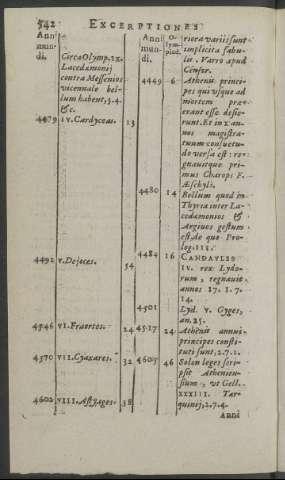 542 EXCERPTIONES
Anni
mun-
di.
Circa Olymp. 1x.
Lacedæmonij
contra Messenios
vicennale bel-
lum habent, 3.4.
&c.
4479 IV. Cardyceas. 13
4492 V. Dejoces. 54
4546 VI. Fraortes. 24
4570 VII. Cyaxares. 32
4602 VIII. Astyages. 38
Anni
mun-
di.
O-
lym-
piad.
riora variis sunt
implicita fabu-
lis. Varro apud
Censor.
4449 6 Athenis princi-
pes qui usque ad
mortem præ-
erant esse desie-
runt. Et in x an-
nos magistra-
tuum consuetu-
do versa est: re-
gnavitque pri-
mus Charops F.
Æschyli.
4480 14 Bellum quod in
Thyrea inter La-
cedæmonios &
Argivos gestum
est, de quo Pro-
log. 111.
4484 16 CANDAULES
IV. rex Lydo-
rum, regnavit
annos 17. 1.7.
14.
4501 Lyd. V. Gyges,
an. 25.
4517 24 Athenis annui
principes consti-
tuti sunt, 2.7.1.
4605 46 Solon leges scri-
psit Athenien-
sium, ut Gell.
XXXIII. Tar-
quinij, 2.7.4.
Anni